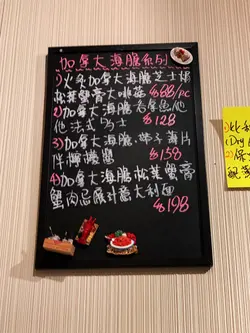 加拿大海膽系列
1)火炙加拿大海膽芝士焗
松葉蟹膏大啡菇 $88/pc
2)加拿大海膽吞拿魚他
他法式多士 $128
3)加拿大海膽、帶子薄片
伴檸檬醬 $158
4)加拿大海膽松葉蟹膏
蟹肉忌廉汁意大利麵
$198